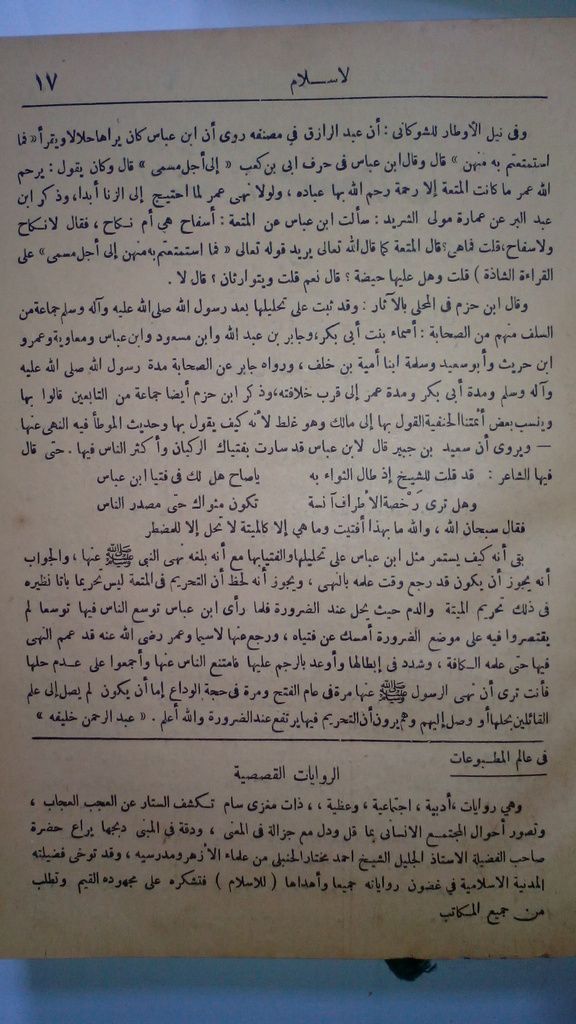 لاسلام ١٧
وفى نيل الأوطار للشوكانى : أن عبد الرازق في مصنفه روى أن ابن عباس كان يراها حلالا ويقرأ « فما
استمتعتم به منهن » قال وقال ابن عباس فى حرف ابى بن كعب « إلى أجل مسمى » قال وكان يقول : يرحم
الله عمر ما كانت المتعة إلا رحمة رحم الله بها عباده ، ولولا نهى عمر لما احتيج إلى الزنا أبدا، وذكر ابن
عبد البر عن عمارة مولى الشريد : سألت ابن عباس عن المتعة : أسفاح هي أم نكاح ، فقال لا نكاح
ولا سفاح، قلت فماهى؟ قال المتعة كما قال الله تعالى يريد قوله تعالى « فما استمتعتم به منهن إلى أجل مسمى » على
القراءة الشاذة ) قلت وهل عليها حيضة ؟ قال نعم قلت ويتوارثان ؟ قال لا .
وقال ابن حزم فى المحلى بالآثار : وقد ثبت على تحليلها بعد رسول الله صلى الله عليه وآله وسلم جماعة من
السلف منهم من الصحابة : أسماء بنت أبى بكر، وجابر بن عبد الله وابن مسعود وابن عباس ومعاوية وعمرو
ابن حريث وأبو سعيد وسلمة ابنا أمية بن خلف ، ورواه جابر عن الصحابة مدة رسول الله صلى الله عليه
وآله وسلم ومدة أبى بكر ومدة عمر إلى قرب خلافته، وذكر ابن حزم أيضا جماعة من التابعين قالوا بها
وينسب بعض أئمتنا الحنفية القول بها إلى مالك وهو غلط لأنه كيف يقول بها وحديث الموطأ فيه النهى عنها
— ويروى أن سعيد بن جبير قال لابن عباس قد سارت بفتياك الركبان وأكثر الناس فيها . حتى قال
فيها الشاعر : قد قلت للشيخ إذ طال الثواء به ياصاح هل لك فى فتيا ابن عباس
وهل ترى رَخْصة الأطراف آنسة تكون مثواك حتى مصدر الناس
فقال سبحان الله ، والله ما بهذا أفتيت وما هي إلا كالميتة لا تحل إلا للمضطر
بقى أنه كيف يستمر مثل ابن عباس على تحليلها والفتيا بها مع أنه بلغه نهى النبى ﷺ عنها ، والجواب
أنه يجوز أن يكون قد رجع وقت علمه بالنهى ، ويجوز أنه لحظ أن التحريم فى المتعة ليس تحريما باتا نظيره
فى ذلك تحريم الميتة والدم حيث يحل عند الضرورة فلما رأى ابن عباس توسع الناس فيها توسعا لم
يقتصروا فيه على موضع الضرورة أمسك عن فتياه ، ورجع عنها لاسيما وعمر رضى الله عنه قد عمم النهى
فيها حتى علمه الكافة ، وشدد فى إبطالها وأوعد بالرجم عليها فامتنع الناس عنها وأجمعوا على عدم حلها
فأنت ترى أن نهى الرسول ﷺ عنها مرة فى عام الفتح ومرة فى حجة الوداع إما أن يكون لم يصل إلى علم
القائلين بحلها أو وصل إليهم وهم يرون أن التحريم فيها يرتفع عند الضرورة والله أعلم . « عبد الرحمن خليفه »
فى عالم المطبوعات
الروايات القصصية
وهي روايات ،أدبية ، اجتماعية ، وعظية ، ، ذات مغزى سام تكشف الستار عن العجب العجاب ،
وتصور أحوال المجتمع الانسانى بما قل ودل مع جزالة فى المعنى ، ودقة في المبنى دبجها يراع حضرة
صاحب الفضيلة الاستاذ الجليل الشيخ احمد مختار الحنبلى من علماء الأزهر ومدرسيه ، وقد توخى فضيلته
المدنية الاسلامية في غضون رواياته جميعا وأهداها ( للاسلام ) فتشكره على مجهوده القيم وتطلب
من جميع المكاتب